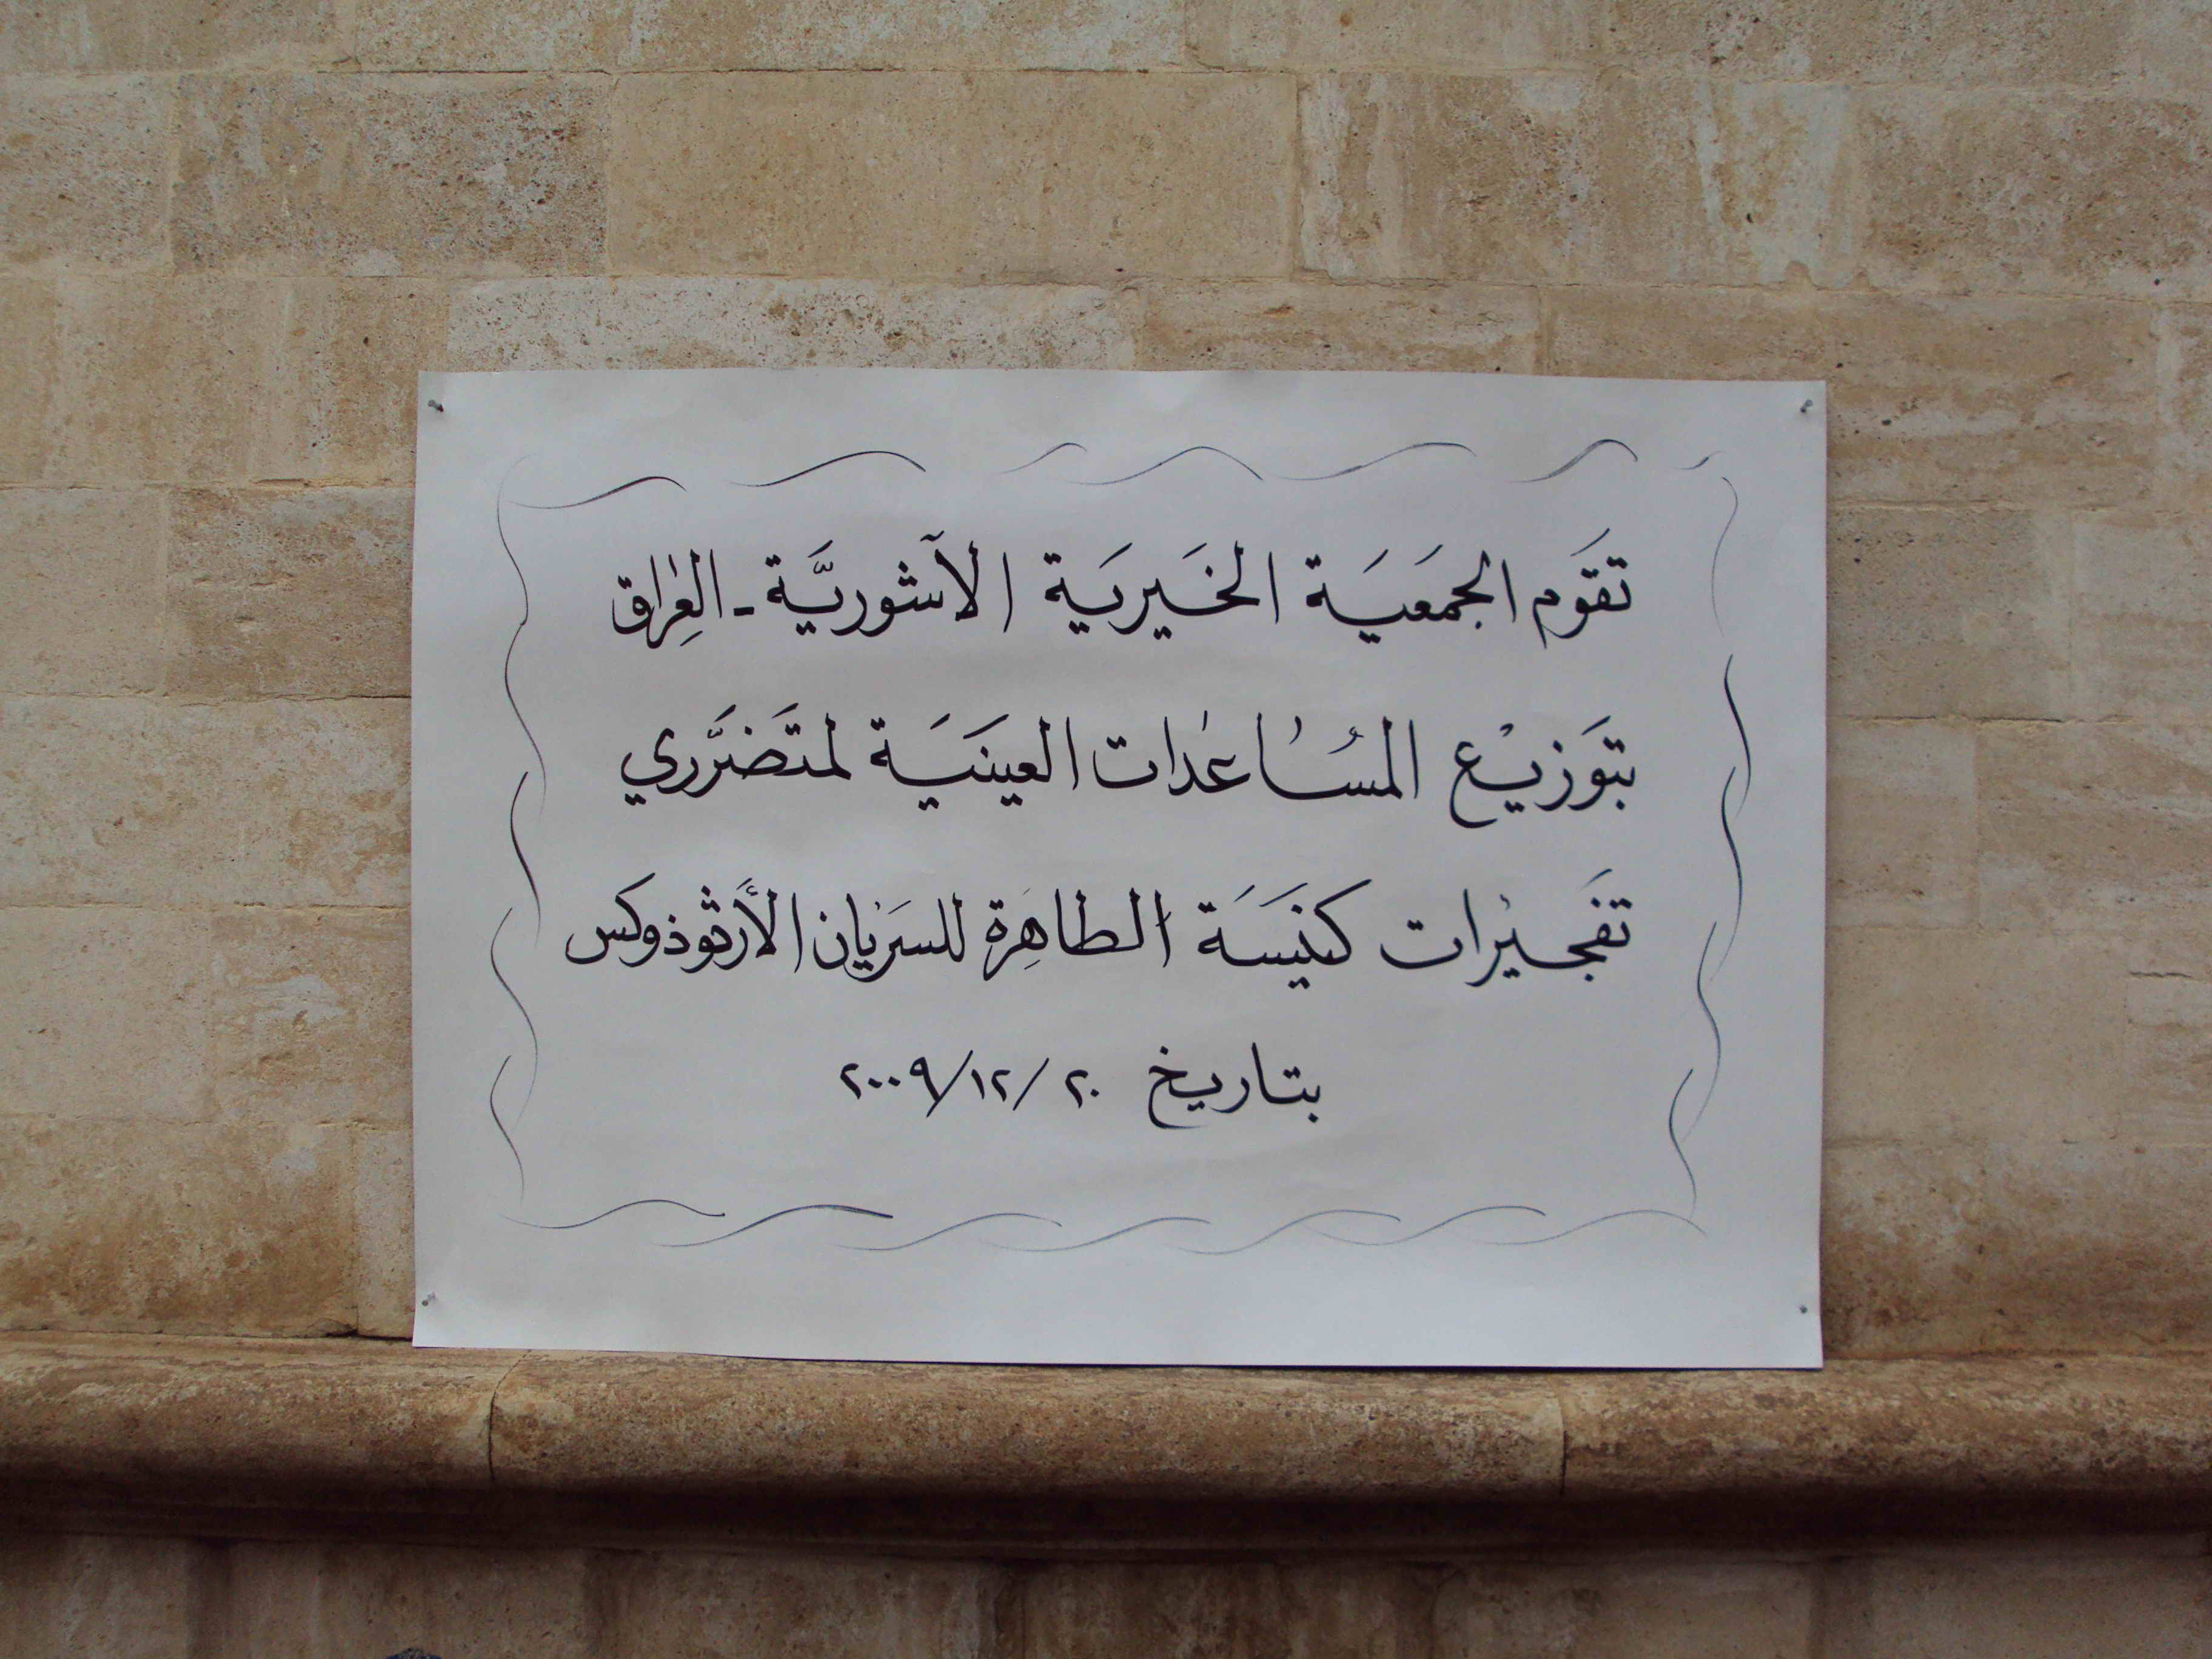 تقَوم الجمَعيَة الخَيريَة الآشوريَّة - العِراق
بتَوزيْع المسُاعدات العينَيَة لمتَضرَّري
تفَجيرات كنَيسَة الطاهِرة للسَريان الأرَثوذوكس
بتاريخ ٢٠/١٢/٢٠٠٩